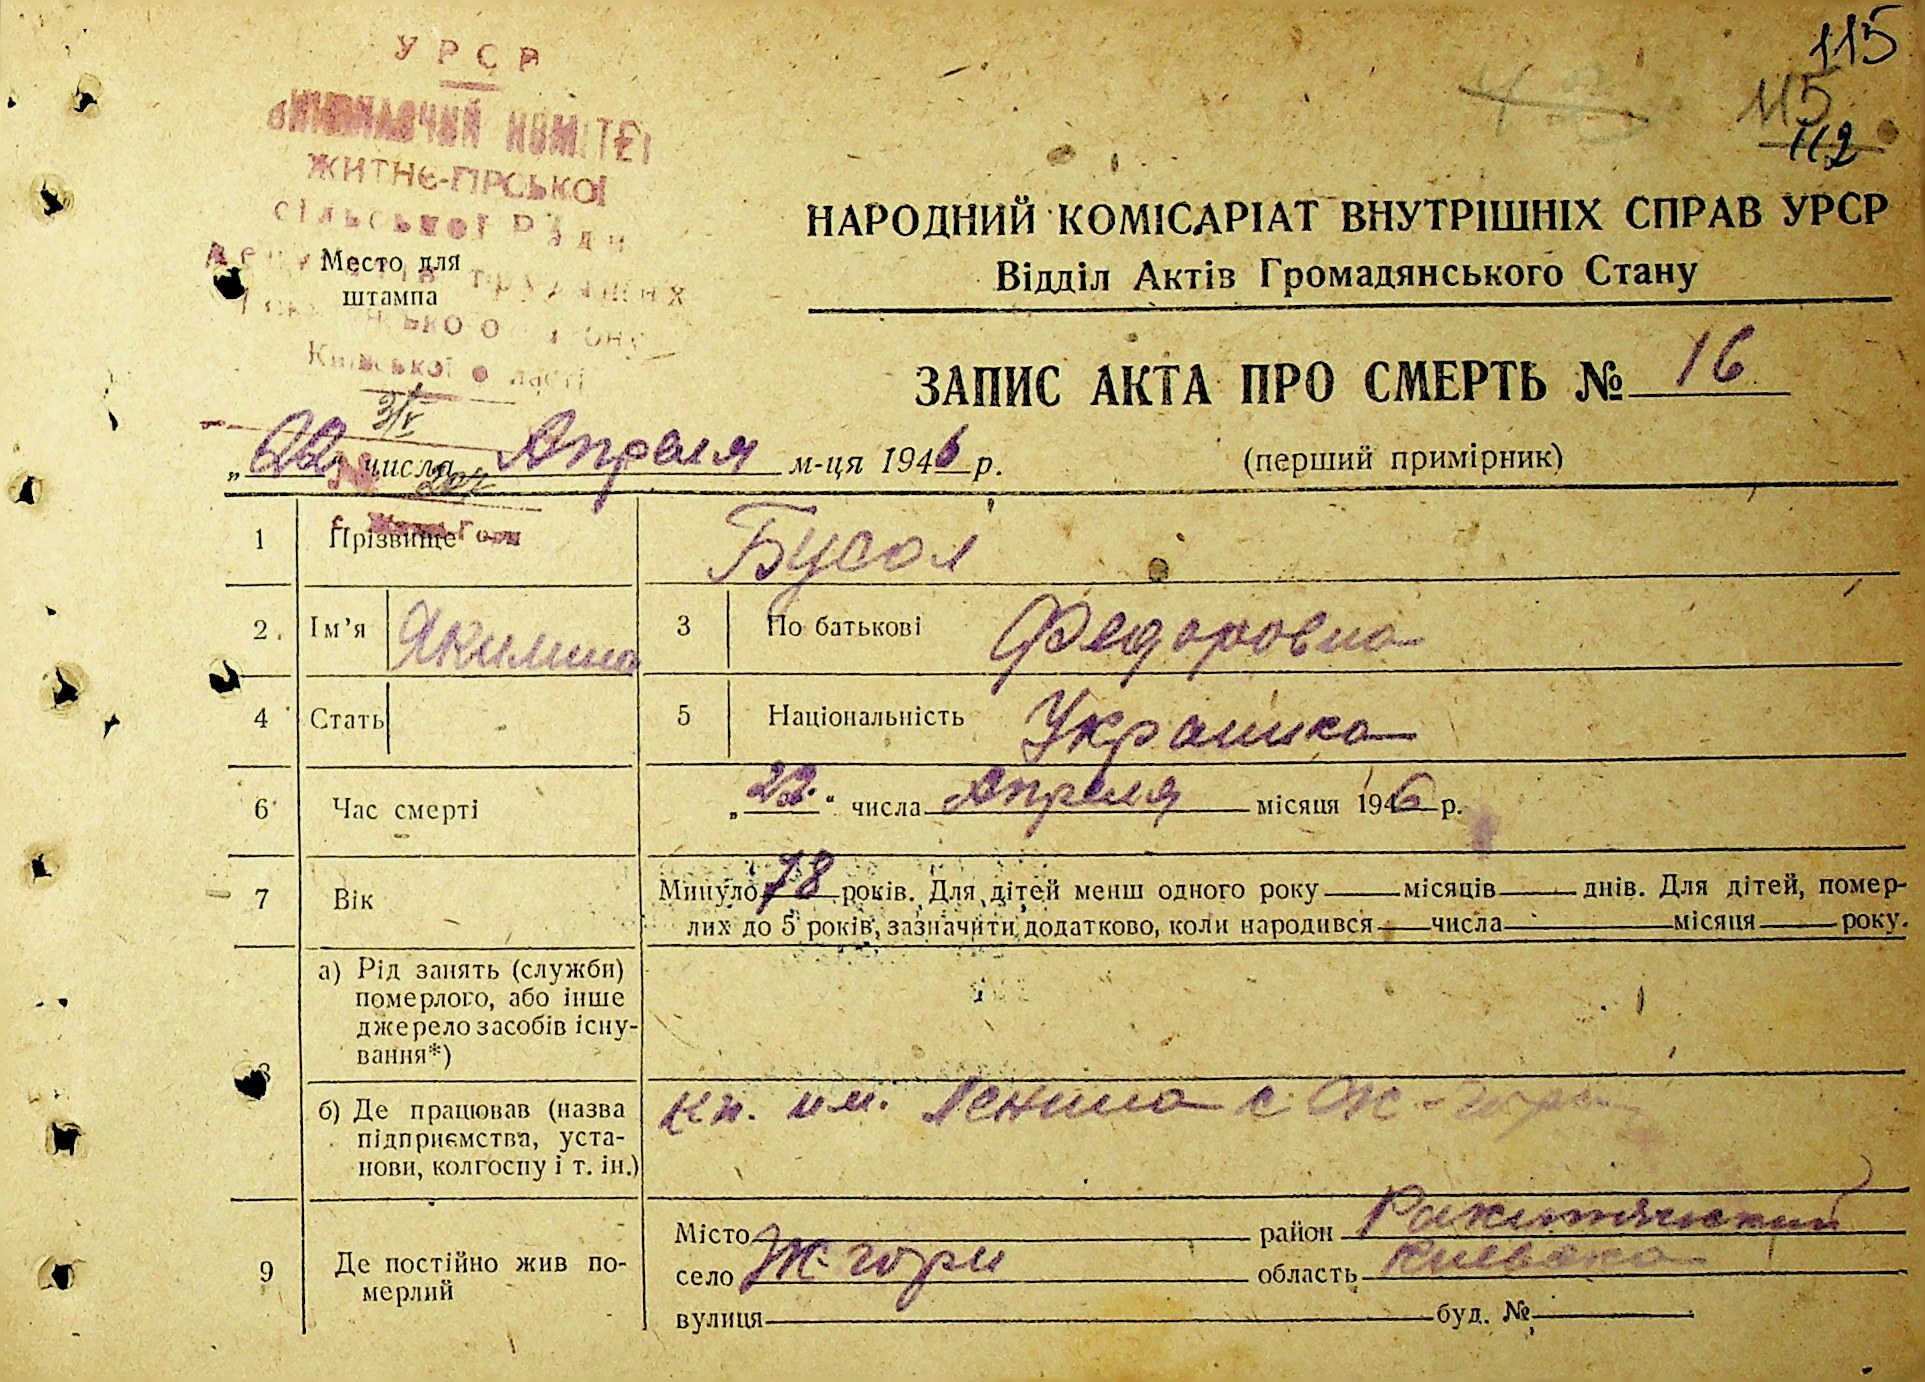 115
115
112
УРСР
ВИКОНАВЧИЙ КОМІТЕТ
ЖИТНЄ-ГІРСЬКОЇ
сільської Ради
Київської області
Место для
штампа
НАРОДНИЙ КОМІСАРІАТ ВНУТРІШНІХ СПРАВ УРСР
Відділ Актів Громадянського Стану
ЗАПИС АКТА ПРО СМЕРТЬ № 16
(перший примірник)
„22“ числа Апреля м-ця 1946 р.
1 Прізвище Бусол
2 Ім’я Якилина 3 По батькові Федоровна
4 Стать 5 Національність Украинка
6 Час смерті „22.“ числа Апреля місяця 1946 р.
7 Вік Минуло 78 років. Для дітей менш одного року місяців днів. Для дітей, помер-
лих до 5 років, зазначити додатково, коли народився числа місяця року.
8 а) Рід занять (служби)
померлого, або інше
джерело засобів існу-
вання*)
б) Де працював (назва
підприємства, уста-
нови, колгоспу і т. ін.)
кл. им. Ленина с. Ж-гори
9 Де постійно жив по-
мерлий
Місто район Ракитянский
село Ж-гори область Киевска
вулиця буд. №